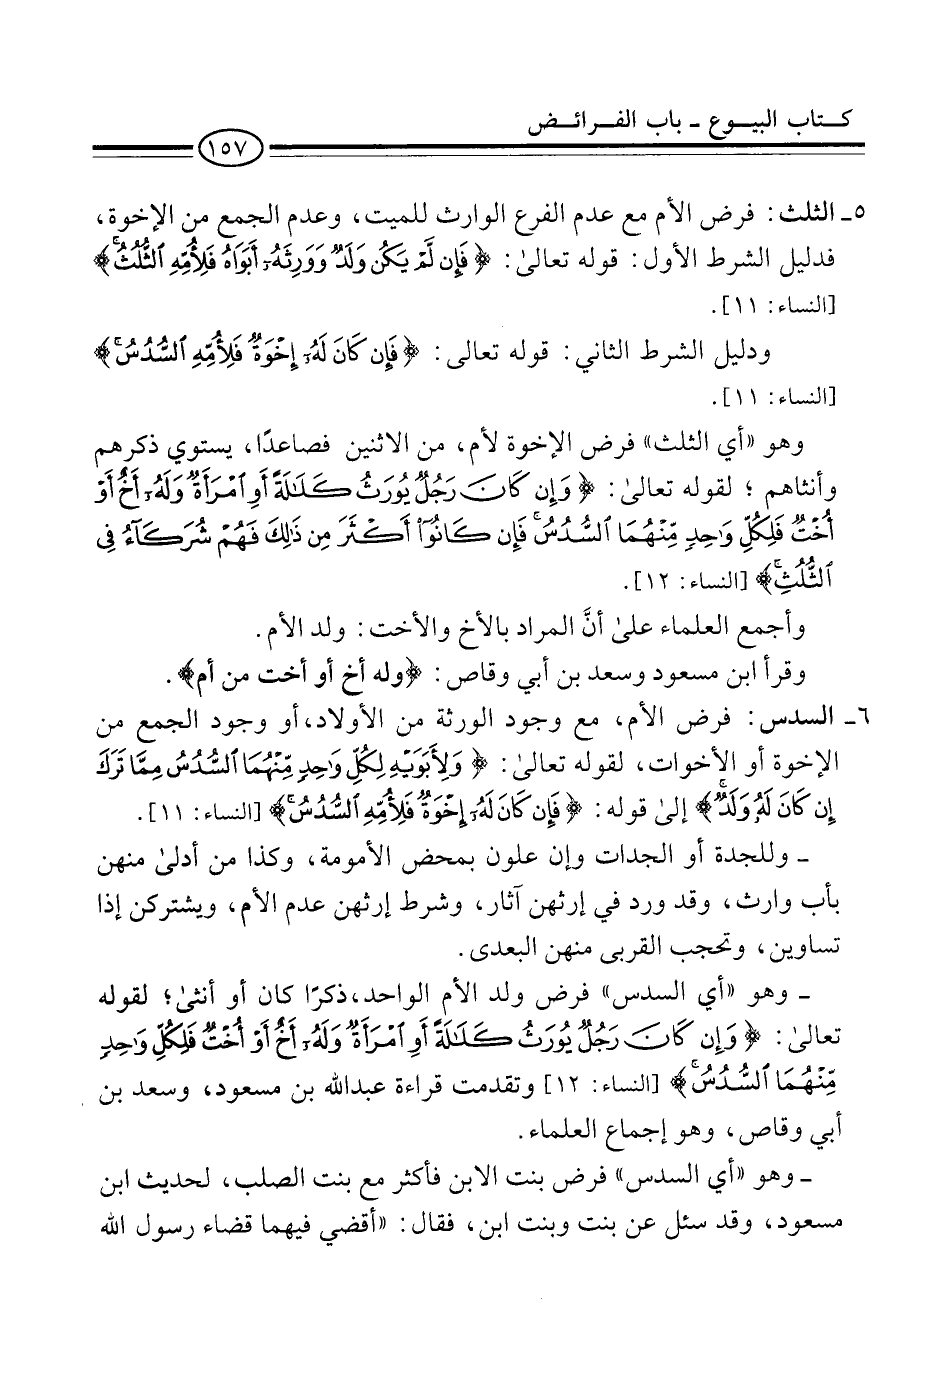 كتاب البيوع - باب الفرائض
١٥٧
٥- الثلث: فرض الأم مع عدم الفرع الوارث للميت، وعدم الجمع من الإخوة،
فدليل الشرط الأول: قوله تعالىٰ: ﴿ فَإِن لَّمْ يَكُن لَّهُۥ وَلَدٌ وَوَرِثَهُۥٓ أَبَوَاهُ فَلِأُمِّهِ ٱلثُّلُثُ ۚ ﴾
[النساء: ١١].
ودليل الشرط الثاني: قوله تعالى: ﴿ فَإِن كَانَ لَهُۥٓ إِخْوَةٌ فَلِأُمِّهِ ٱلسُّدُسُ ۚ ﴾
[النساء: ١١].
وهو «أي الثلث» فرض الإخوة لأم، من الاثنين فصاعدًا، يستوي ذكرهم
وأنثاهم ؛ لقوله تعالىٰ: ﴿ وَإِن كَانَ رَجُلٌ يُورَثُ كَلَٰلَةً أَوِ ٱمْرَأَةٌ وَلَهُۥٓ أَخٌ أَوْ
أُخْتٌ فَلِكُلِّ وَٰحِدٍ مِّنْهُمَا ٱلسُّدُسُ ۚ فَإِن كَانُوٓا۟ أَكْثَرَ مِن ذَٰلِكَ فَهُمْ شُرَكَآءُ فِى
ٱلثُّلُثِ ۚ ﴾ [النساء: ١٢].
وأجمع العلماء علىٰ أنَّ المراد بالأخ والأخت: ولد الأم.
وقرأ ابن مسعود وسعد بن أبي وقاص: ﴿وله أخ أو أخت من أم﴾.
٦- السدس: فرض الأم، مع وجود الورثة من الأولاد،أو وجود الجمع من
الإخوة أو الأخوات، لقوله تعالىٰ: ﴿ وَلِأَبَوَيْهِ لِكُلِّ وَٰحِدٍ مِّنْهُمَا ٱلسُّدُسُ مِمَّا تَرَكَ
إِن كَانَ لَهُۥ وَلَدٌ ۚ ﴾ إلىٰ قوله: ﴿ فَإِن كَانَ لَهُۥٓ إِخْوَةٌ فَلِأُمِّهِ ٱلسُّدُسُ ۚ ﴾ [النساء: ١١].
- وللجدة أو الجدات وإن علون بمحض الأمومة، وكذا من أدلىٰ منهن
بأب وارث، وقد ورد في إرثهن آثار، وشرط إرثهن عدم الأم، ويشتركن إذا
تساوين، وتحجب القربى منهن البعدى.
- وهو «أي السدس» فرض ولد الأم الواحد،ذكرًا كان أو أنثىٰ؛ لقوله
تعالىٰ: ﴿ وَإِن كَانَ رَجُلٌ يُورَثُ كَلَٰلَةً أَوِ ٱمْرَأَةٌ وَلَهُۥٓ أَخٌ أَوْ أُخْتٌ فَلِكُلِّ وَٰحِدٍ
مِّنْهُمَا ٱلسُّدُسُ ۚ ﴾ [النساء: ١٢] وتقدمت قراءة عبدالله بن مسعود، وسعد بن
أبي وقاص، وهو إجماع العلماء.
- وهو «أي السدس» فرض بنت الابن فأكثر مع بنت الصلب، لحديث ابن
مسعود، وقد سئل عن بنت وبنت ابن، فقال: «أقضي فيهما قضاء رسول الله